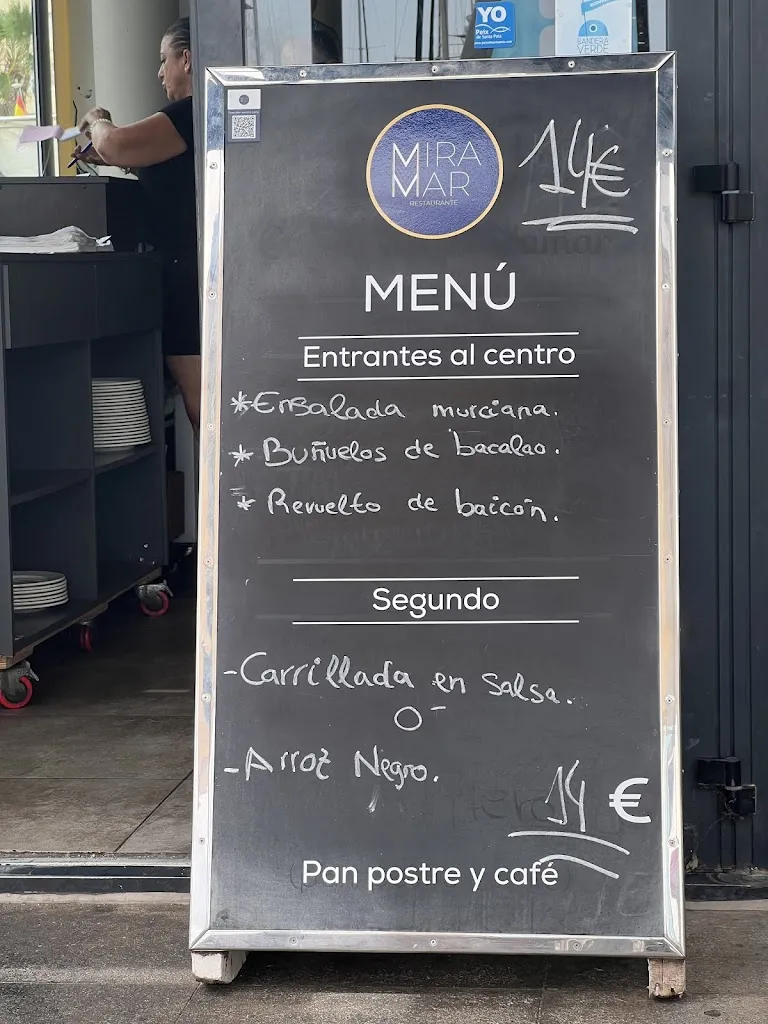 YO
Peix
de Santa Pola
BANDERA
VERDE
MIRA
MAR
RESTAURANTE
14€
MENÚ
Entrantes al centro
*Ensalada murciana.
* Buñuelos de bacalao.
* Revuelto de baicón.
Segundo
-Carrillada en salsa.
O-
-Arroz Negro.
14 €
Pan postre y café